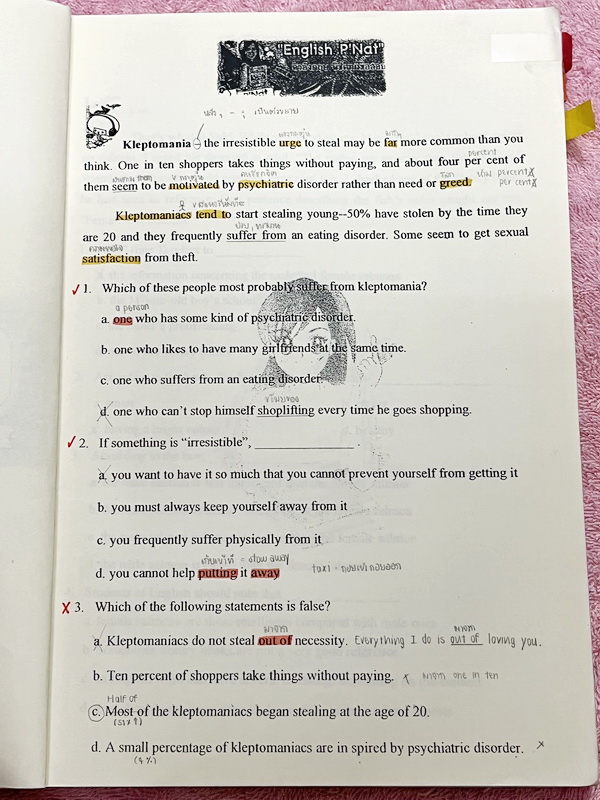 "English P'Nat"
หลัง , - ; เป็นคำขยาย
แรงกระตุ้น มาก
Kleptomania – the irresistible urge to steal may be far more common than you
percent
think. One in ten shoppers takes things without paying, and about four per cent of
โลภ per cent
them seem to be motivated by psychiatric disorder rather than need or greed.
Kleptomaniacs tend to start stealing young--50% have stolen by the time they
are 20 and they frequently suffer from an eating disorder. Some seem to get sexual
ความพอใจ
satisfaction from theft.
✓ 1. Which of these people most probably suffer from kleptomania?
a person
a. one who has some kind of psychiatric disorder.
b. one who likes to have many girlfriends at the same time.
c. one who suffers from an eating disorder.
ขโมยของ
d. one who can't stop himself shoplifting every time he goes shopping.
✓ 2. If something is "irresistible", ______________ .
a. you want to have it so much that you cannot prevent yourself from getting it
b. you must always keep yourself away from it
c. you frequently suffer physically from it
เก็บเข้าที่ = stow away
d. you cannot help putting it away
X 3. Which of the following statements is false?
มาจาก มาจาก
a. Kleptomaniacs do not steal out of necessity. Everything I do is out of loving you.
b. Ten percent of shoppers take things without paying. มาจาก one in ten
Half of
c. Most of the kleptomaniacs began stealing at the age of 20.
d. A small percentage of kleptomaniacs are in spired by psychiatric disorder. x
(4 %)